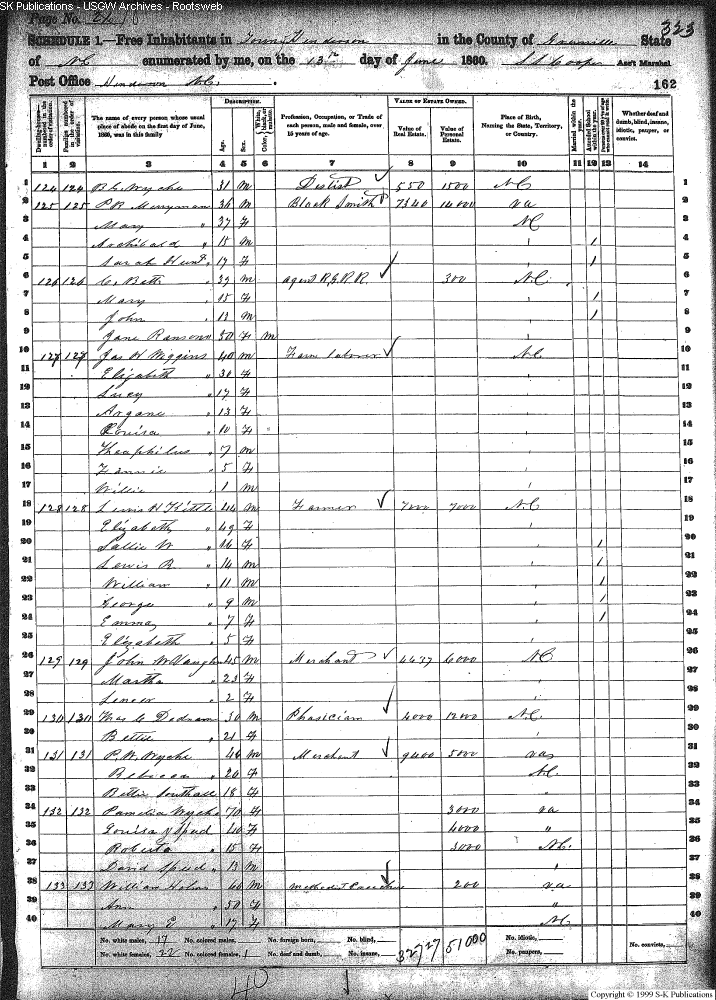 SK Publications - USGW Archives - Rootsweb
Page No.
323
SCHEDULE 1.—Free Inhabitants in Town Henderson in the County of Granville State
of NC enumerated by me, on the 13th day of June 1860. Cooper Ass't Marshal
Post Office Henderson N.C. 162
DESCRIPTION. VALUE OF ESTATE OWNED.
Dwelling-houses—numbered in the order of visitation. Families numbered in the order of visitation. The name of every person whose usual place of abode on the first day of June, 1860, was in this family Age. Sex. Color, White, black, or mulatto. Profession, Occupation, or Trade of each person, male and female, over 15 years of age. Value of Real Estate. Value of Personal Estate. Place of Birth, Naming the State, Territory, or Country. Married within the year. Attended School within the year. Whether deaf and dumb, blind, insane, idiotic, pauper, or convict.
1 2 3 4 5 6 7 8 9 10 11 12 13 14
1 124 124 31 m Dentist 550 1500 NC 1
2 125 125 P B Merryman 36 m Black Smith 7340 14000 va 2
3 Mary " 37 F NC 3
4 Archibald " 18 m 1 4
5 Sarah Hunt 17 F 1 5
6 126 126 C. Betts 39 m agent R.G.R.R. 300 NC 6
7 Mary 15 F 1 7
8 John 13 m 1 8
9 Jane Ransom 50 F m 9
10 127 127 Jas H Wiggins 40 m Farm Laborer NC 10
11 Elizabeth " 30 F 11
12 Lucy " 17 F 12
13 Argane " 13 F 13
14 Louisa " 10 F 14
15 Theophilus " 7 m 15
16 Fannie " 5 F 16
17 Willie " 1 m 17
18 128 128 Lewis H Kittle 44 m Farmer 7000 7000 NC 18
19 Elizabeth " 49 F 19
20 Sallie W " 16 F 1 20
21 Lewis R " 14 m 1 21
22 William " 11 m 1 22
23 George " 9 m 1 23
24 Emma " 7 F 1 24
25 Elizabeth " 5 F 25
26 129 129 John W Vaughn 45 m Merchant 4437 6000 NC 26
27 Martha " 23 F 27
28 Spencer " 2 F 28
29 130 130 30 m Phasician 4000 12000 N.C. 29
30 Bettie " 21 F 30
31 131 131 P. W. Wyche 44 m Merchant 9400 5000 va 31
32 Rebecca " 20 F NC 32
33 Bettie Southall 18 F " 33
34 132 132 Pamelia Wyche 70 F 3000 va 34
35 Louisa Y Speed 40 F 4000 " 35
36 Roberta " 15 F 3000 NC. 36
37 David Speed " 13 m 37
38 133 133 William 60 m Methodist 200 va 38
39 Ann " 50 F " 39
40 Mary E " 17 F NC 40
No. white males, 17 No. colored males, No. foreign born, No. blind, 32727 51000 No. idiotic, No. convicts,
No. white females, 22 No. colored females, 1 No. deaf and dumb, No. insane, No. paupers,
40
Copyright © 1999 S-K Publications